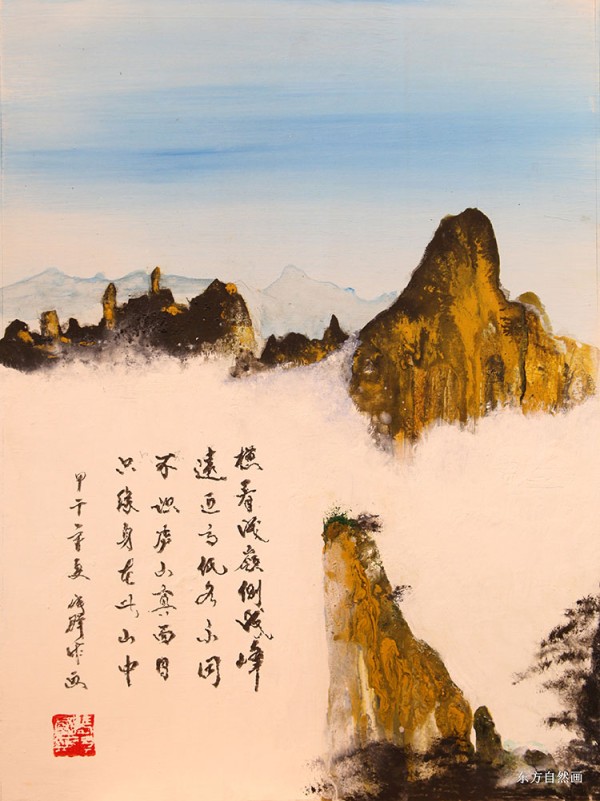 橫看成嶺側成峰
遠近高低各不同
不识庐山真面目
只缘身在此山中
甲午 夏 作画
东方自然画